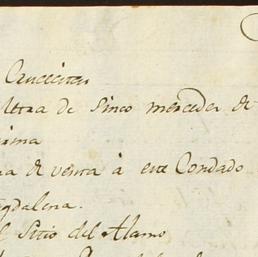 Crucecitas
letra de sinco mercedes de
de venta à este Condado
gdalena.
Sitio del Alamo